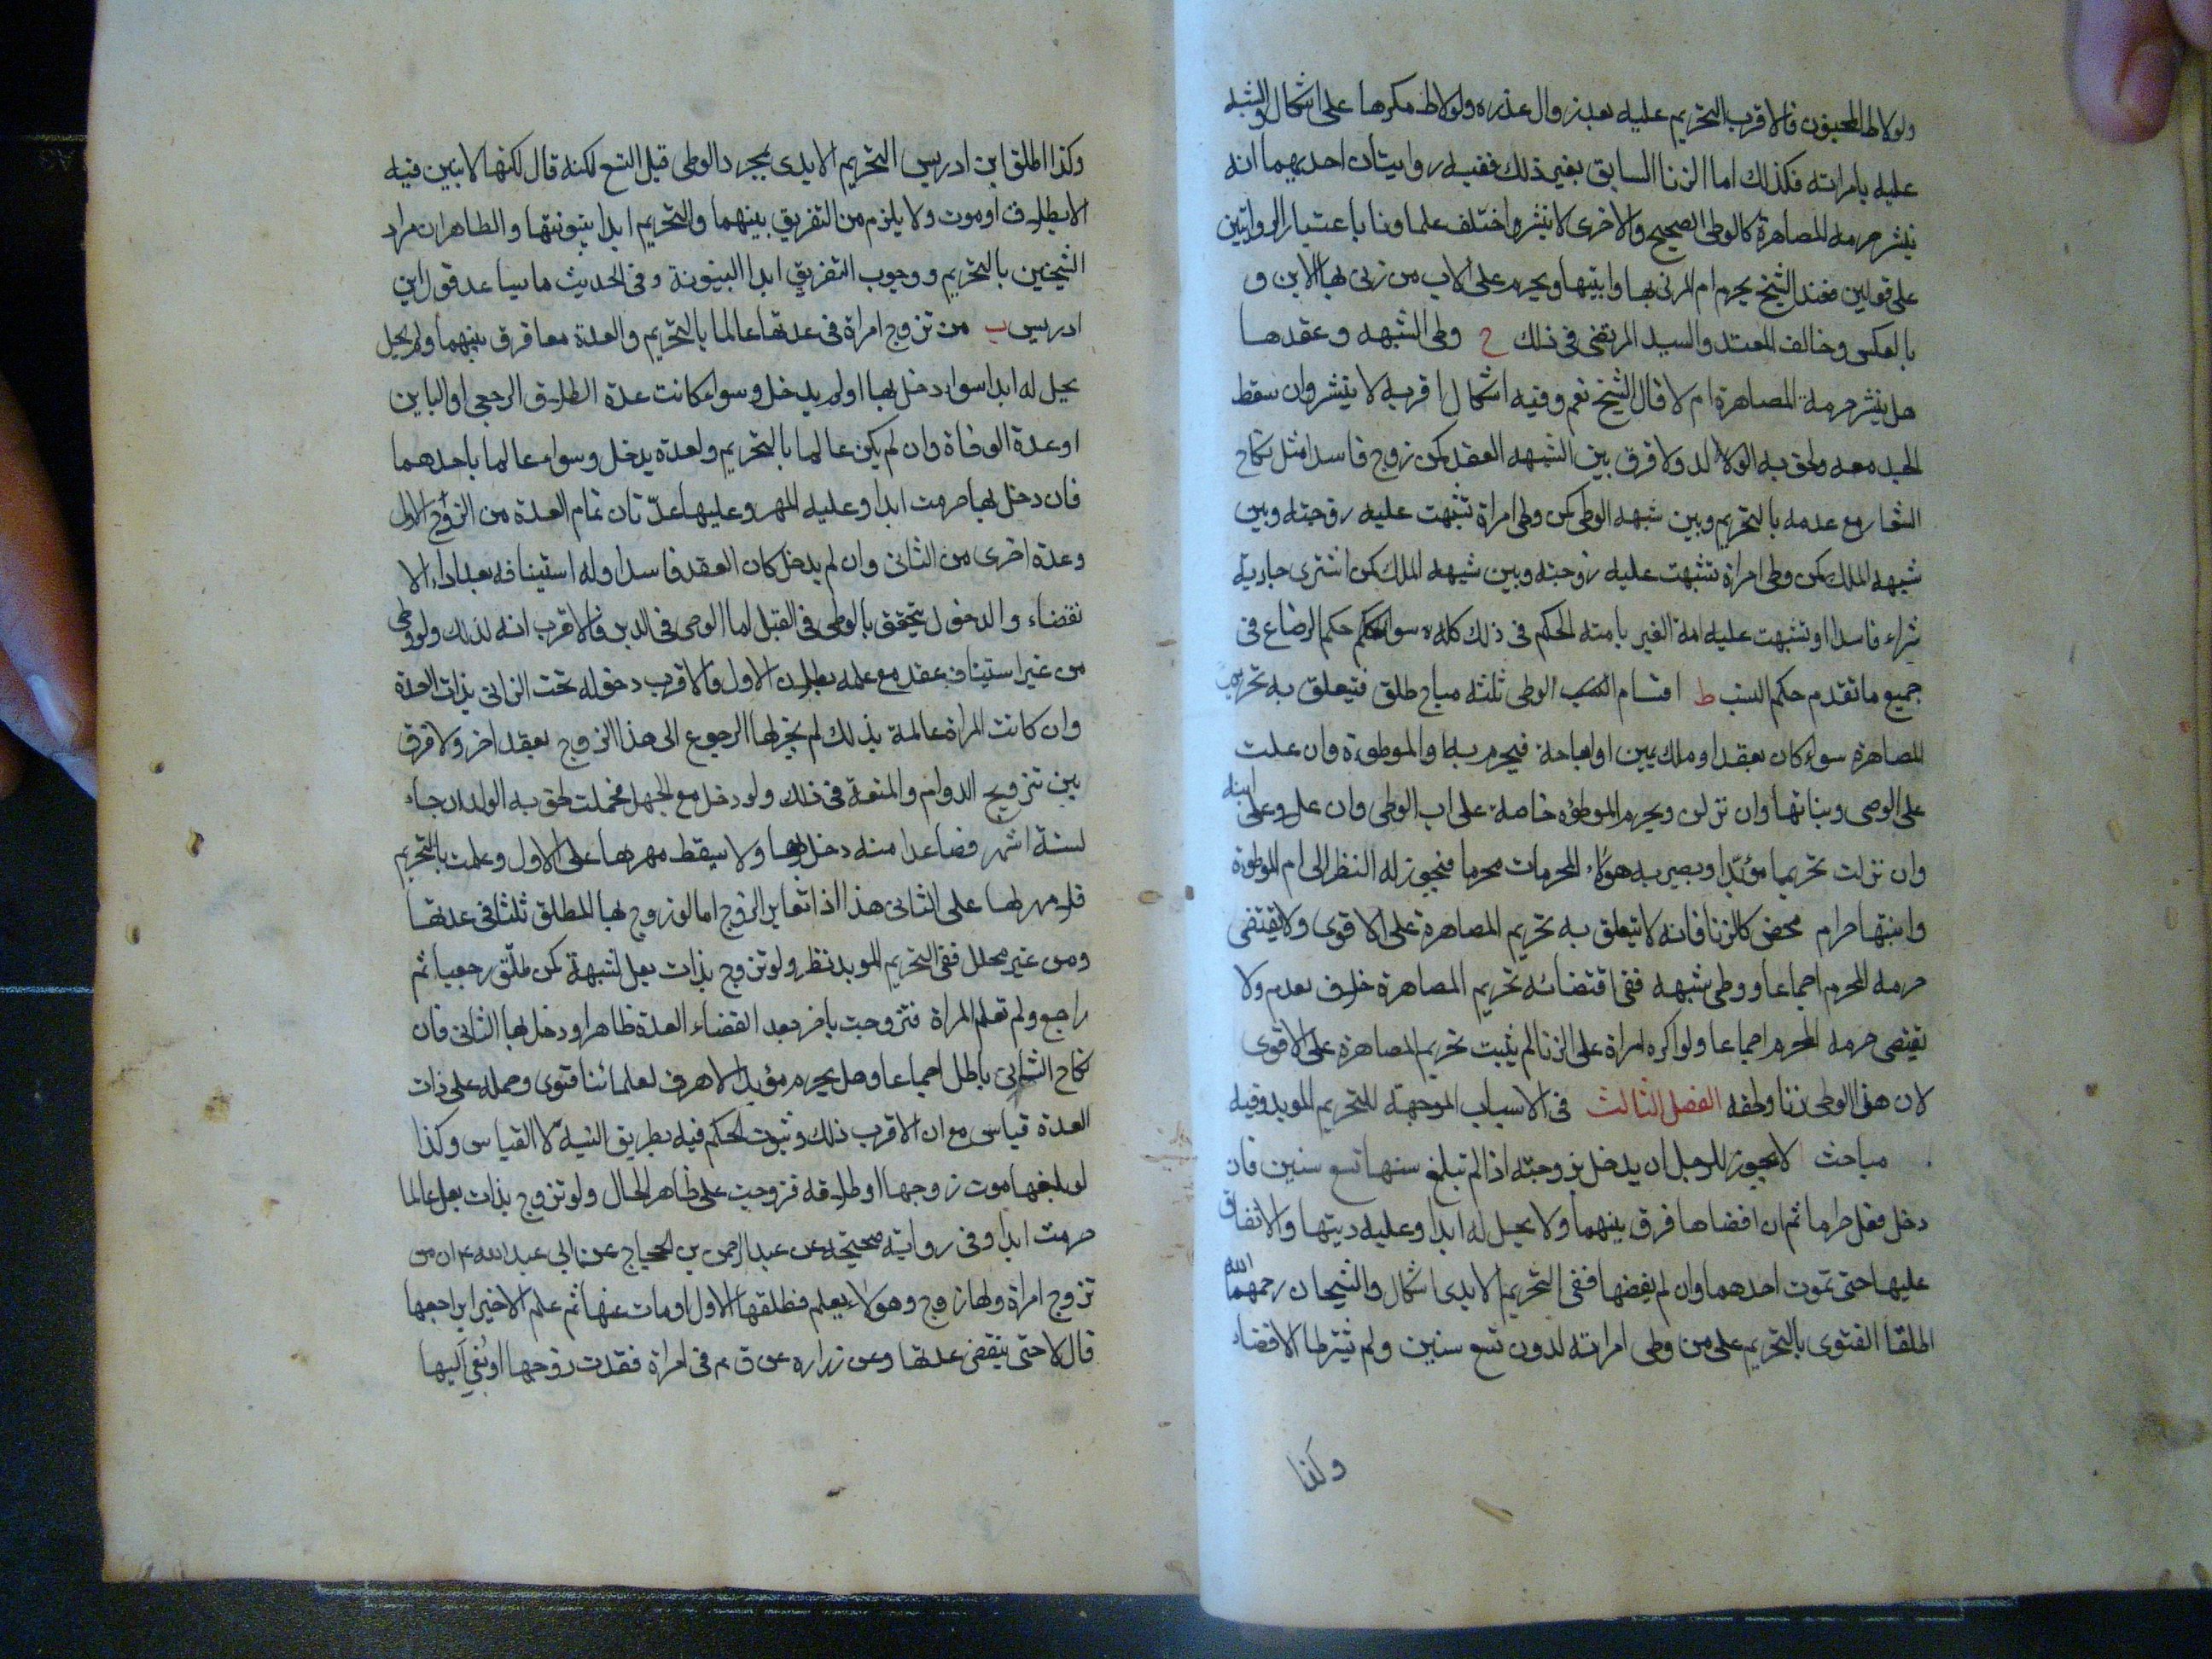 ولو لاط المجنون فالاقرب التحريم عليه بعد زوال عذره ولو لاط مكرها على اشكال والشبه
عليه بامراته فكذلك اما الزنا السابق بغير ذلك ففيه روايتان احديهما انه
ينشر حرمه المصاهرة كالوطى الصحيح والاخرى لا ينشر واختلف علماونا باعتبار الروايتين
على قولين فعند الشيخ يحرم ام المزنى بها وابنتها ويحرم على الاب من زنى بها الابن و
بالعكس وخالف المفيد والسيد المرتضى فى ذلك ح وطى الشبهه وعقدها
هل ينشر حرمة المصاهرة ام لا قال الشيخ نعم وفيه اشكال اقربه لا ينشر وان سقط
الحد معه ولحق به الولد ولا فرق بين الشبهه العقد كمن تزوج فاسدا مثل نكاح
الشغار مع عدمه بالتحريم وبين شبهه الوطى كمن وطى امراة تشبهت عليه زوجته وبين
شبهه الملك كمن وطى امراة تشبهت عليه زوجته وبين شبهه الملك كمن اشترى جارية
شراء فاسدا او تشبهت عليه امة الغير بامته الحكم فى ذلك كله سواء حكم الرضاع فى
جميع ما تقدم حكم النسب ط اقسام الوطى ثلثه مباح طلق فيتعلق به تحريم
المصاهرة سواء كان بعقد او ملك يمين او اباحة فيحرم به ام الموطوءة وان علت
على الوطى وبناتها وان نزلن ويحرم الموطوءه خاصة على اب الوطى وان علا وعلى ابنه
وان نزلت تحريما مؤبدا ويصير به هؤلاء المحرمات محرما فيجوز له النظر الى ام الموطوءة
وابنتها حرام محض كالزنا فانه لا يتعلق به تحريم المصاهرة على الاقوى ولا يقتضى
حرمه المحرم اجماعا ووطى شبهه ففى اقتضائه تحريم المصاهرة خلاف بعدم ولا
يقتضى حرمه المحرم اجماعا ولو اكره امراة على الزنا لم يثبت تحريم المصاهرة على الاقوى
لان هذا الوطى زنا الفصل الثالث فى الاسباب الموجبة للتحريم الموبد وفيه
مباحث لا يجوز للرجل ان يدخل بزوجته اذا لم تبلغ سنها تسع سنين فان
دخل فعل حراما ثم ان افضاها فرق بينهما ولا يحل له ابدا وعليه ديتها والانفاق
عليها حتى تموت احدهما وان لم يفضها ففى التحريم الابدى اشكال والشيخان رحمهما الله
اطلقا الفتوى بالتحريم على من وطى امراته لدون تسع سنين ولم يشترطا الافضاء
وكذا
وكذا اطلق ابن ادريس التحريم الابدى بمجرد الوطى قبل التسع لكنه قال لكنها لا تبين فيه
الا بطلاق او موت ولا يلزم من التفريق بينهما والتحريم ابدا بينونتها والظاهر ان مراد
الشيخين بالتحريم ووجوب التفريق ابدا البينونة وفى الحديث ما يساعد قول ابن
ادريس ب من تزوج امراة فى عدتها عالما بالتحريم والعدة معا فرق بينهما ولم يحل
يحل له ابدا سواء دخل بها او لم يدخل وسواء كانت عدة الطلاق الرجعى او الباين
او عدة الوفاة وان لم يكن عالما بالتحريم ولعدة يدخل وسواء عالما باحدهما
فان دخل بها حرمت ابدا وعليه المهر وعليها عدتان تمام العدة من الزوج الاول
وعدة اخرى من الثانى وان لم يدخل كان العقد فاسدا وله استينافه بعد الا
نقضاء والدخول يتحقق بالوطى فى القبل اما الوطى فى الدبر فالاقرب انه كذلك ولو وطى
من غير استيناف عقد مع علمه ببطلان الاول فالاقرب دخوله تحت الزانى بذات العدة
وان كانت المراة عالمة بذلك لم يجز لها الرجوع الى هذا الزوج بعقد اخر ولا فرق
بين تزويج الدوام والمتعة فى ذلك ولو دخل مع الجهل فحملت لحق به الولد ان جاء
لستة اشهر فصاعدا منذ دخل بها ولا يسقط مهرها على الاول وعلمت بالتحريم
فلا مهر لها على الثانى هذا اذا تغاير الزوج اما لو تزوج بها المطلق ثلثا فى عدتها
ومن غير محلل ففى التحريم الموبد نظر ولو تزوج بذات بعل لشبهة كمن طلق رجعيا ثم
راجع ولم تعلم المراة فتزوجت باخر بعد انقضاء العدة ظاهرا ودخل بها الثانى فان
نكاح الثانى باطل اجماعا وهل يحرم مؤبدا لا اعرف لعلمائنا فتوى وحمله على ذات
العدة قياس مع ان الاقرب ذلك وثبوت الحكم فيه بطريق التنبيه لا القياس وكذا
لو بلغها موت زوجها او طلاقه فتزوجت على ظاهر الحال ولو تزوج بذات بعل عالما
حرمت ابدا وفى رواية صحيحه عن عبد الرحمن بن الحجاج عن ابى عبد الله ع ان من
تزوج امراة ولها زوج وهو لا يعلم فطلقها الاول او مات عنها ثم علم الاخير ايراجعها
قال لا حتى ينقضى عدتها وعن زراره عن ق ع فى امراة فقدت زوجها او نعى اليها